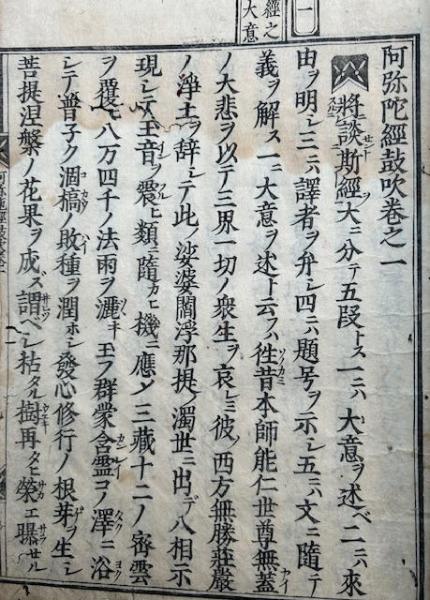 一
經之
大意
阿弥陀經鼓吹巻之一
將談斯經大ニ分テ五段トス一ニハ大意ヲ述ベ二ニハ來
由ヲ明シ三ニハ譯者ヲ弁シ四ニハ題号ヲ示シ五ニハ文ニ隨テ
義ヲ解ス一ニ大意ヲ述ト云フハ徃昔本師能仁世尊無蓋
ノ大悲ヲ以テ三界一切ノ衆生ヲ哀レミ彼ノ西方無勝莊嚴
ノ浄土ヲ辞シテ此ノ娑婆閻浮那提ノ濁世ニ出デ八相示
現シテ玉音ヲ震ヒ類ニ隨カヒ機ニ應ジ三藏十二ノ密雲
ヲ覆ヒ八万四千ノ法雨ヲ灑キ玉フ群蒙含霊コノ澤ニ浴
シテ普子ク涸槁敗種ヲ潤ホシ發心修行ノ根芽ヲ生シ
菩提涅槃ノ花果ヲ成ズ謂ベシ枯タル樹再タヒ榮エ